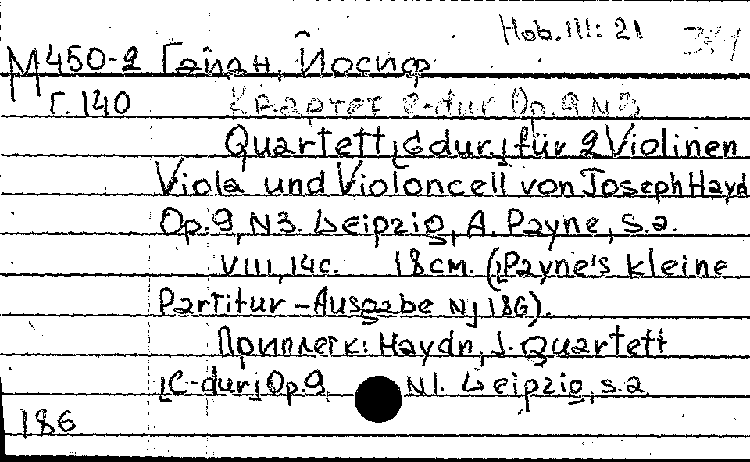 Hob. III: 21
M 450-2 Гайдн, Йосиф
Г. 140 Квартет Op. 9 N 3
Quartett [G dur] für 2 Violinen
Viola und Violoncell von Joseph Hayd
Op. 9, N 3. Leipzig, A. Payne, s.a.
VIII, 14 с. 18 см. (Payne's kleine
Partitur-Ausgabe N 186).
Приплетк: Haydn, J. Quartett
[C-dur] Op. 9 N 1. Leipzig, s.a
186